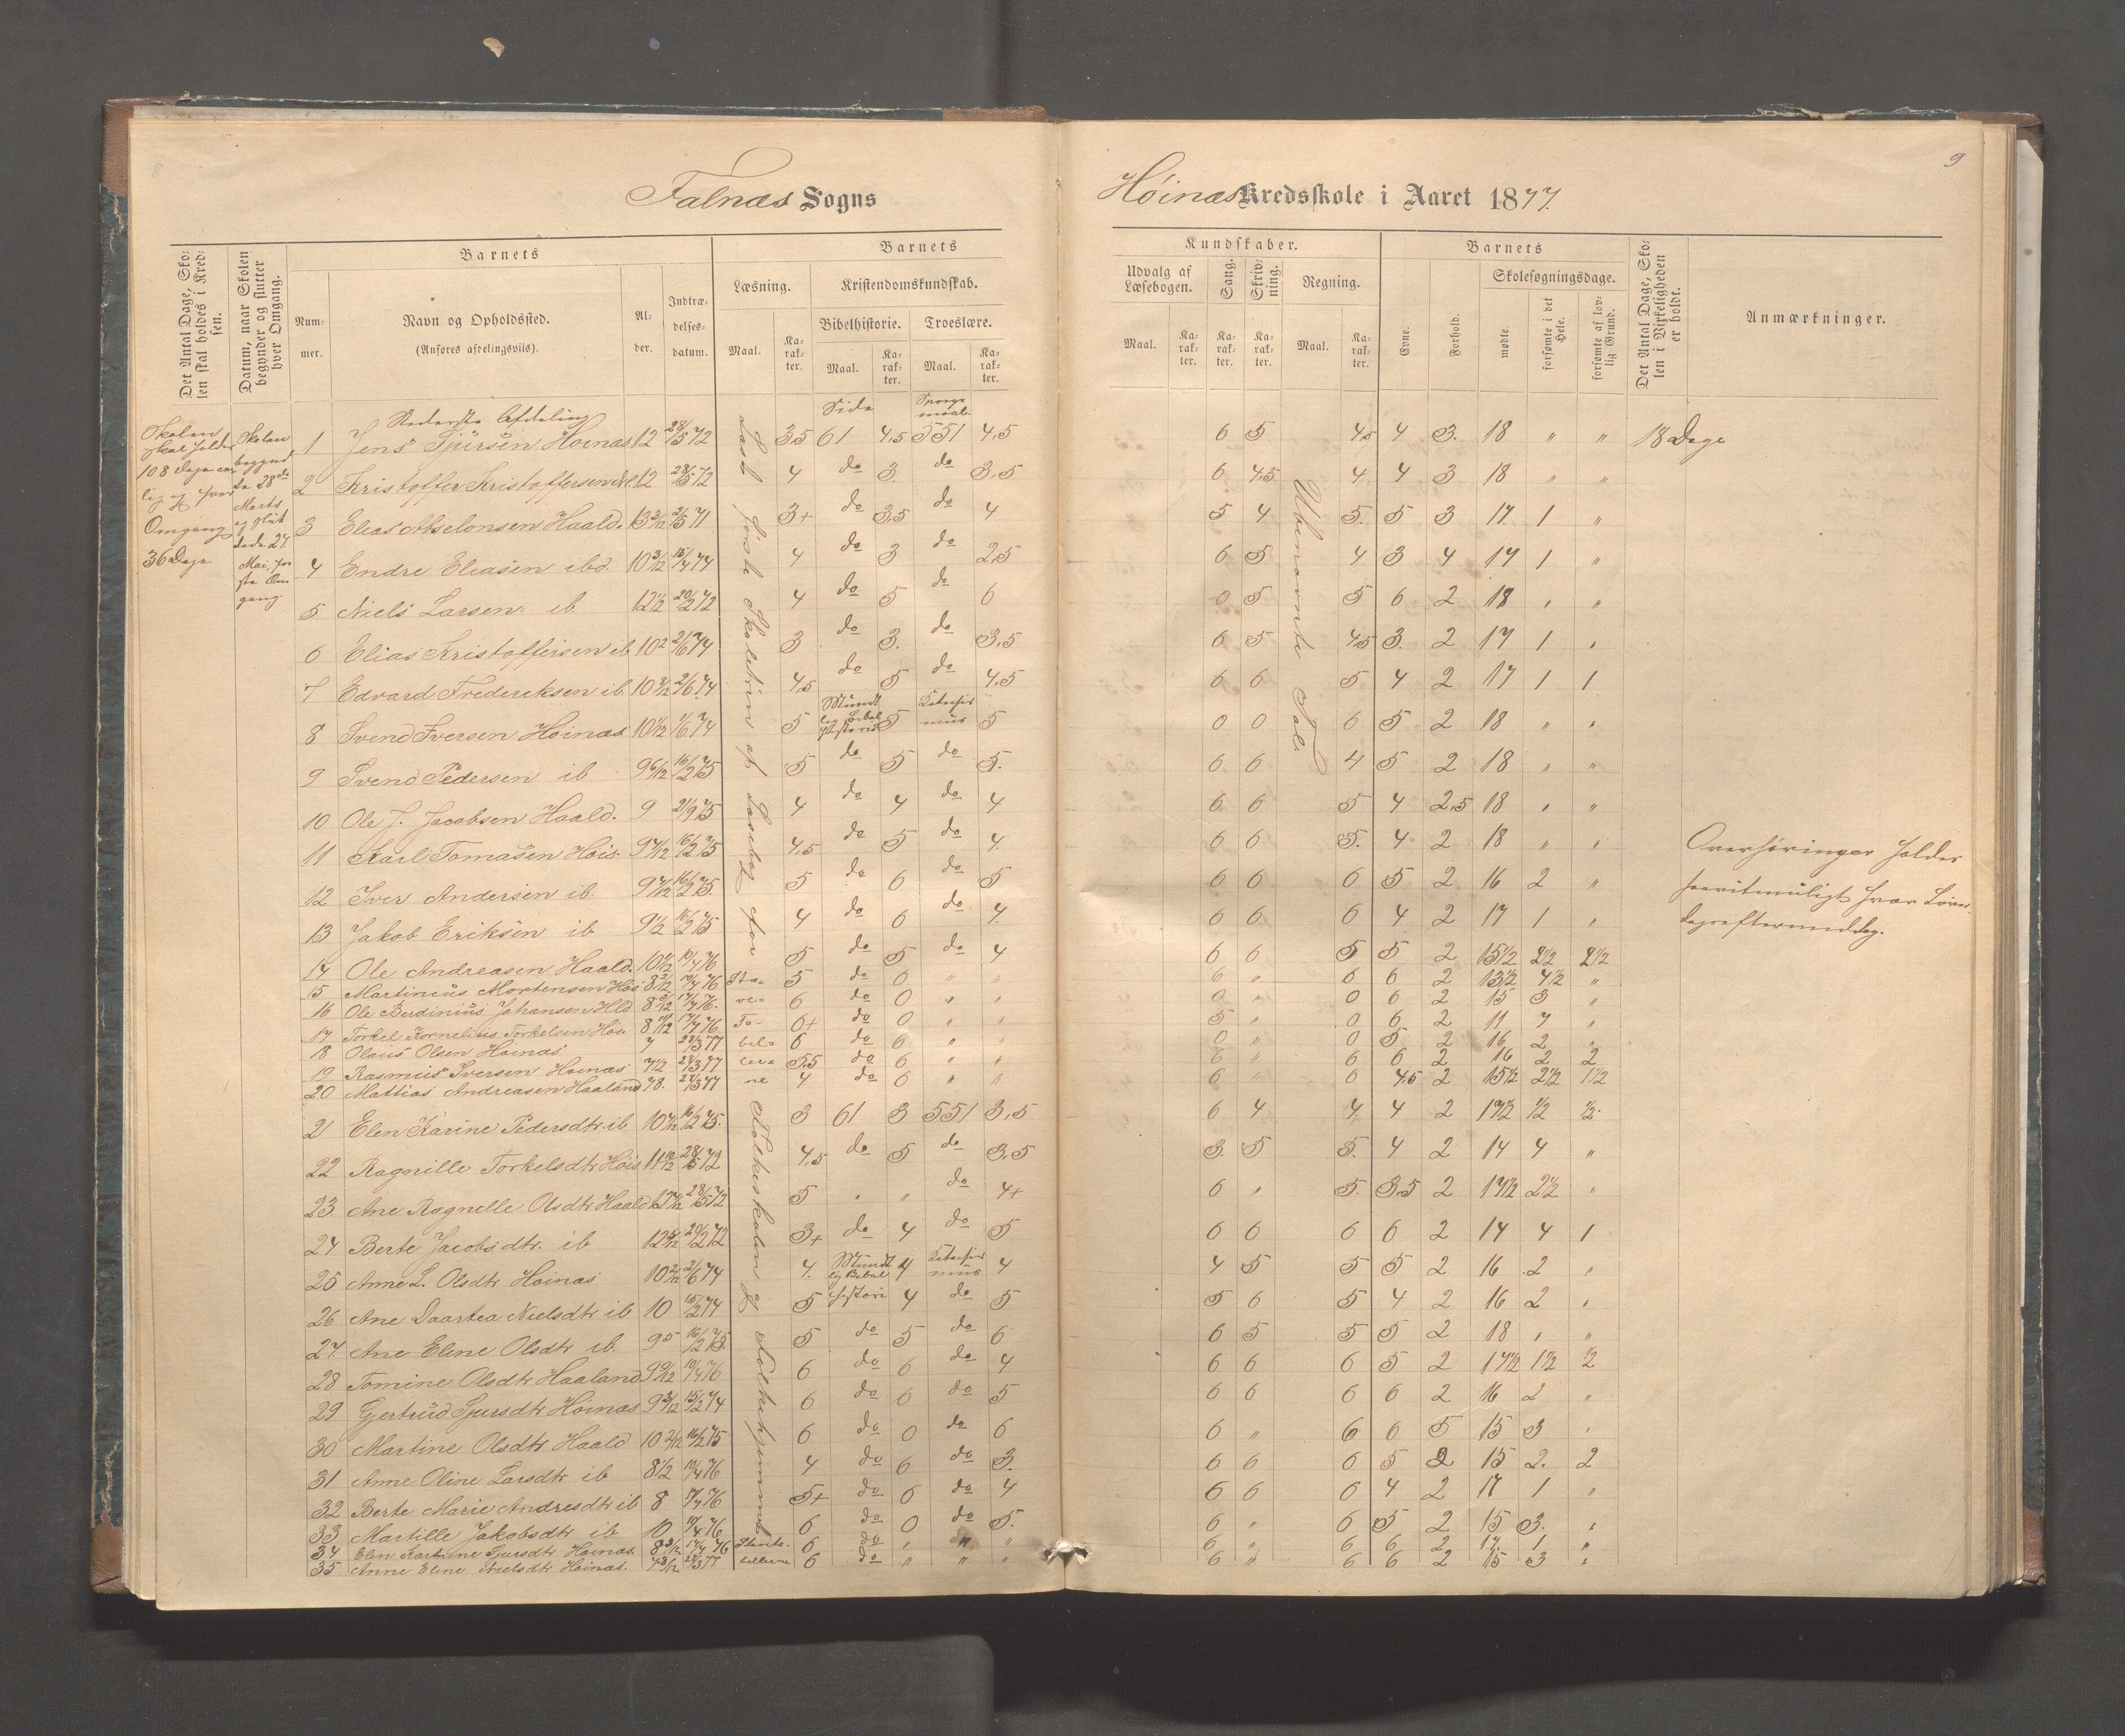 8
9
Falnæs Sogns
Høinæs Kredsskole i Aaret 1877.
Det Antal Dage, Skolen skal holdes i Kredsen.
Datum, naar Skolen begynder og slutter hver Omgang.
Barnets
Nummer.
Navn og Opholdssted.
(Anføres afdelingsviis).
Alder.
Indtrædelsesdatum.
Barnets
Læsning.
Maal.
Karakter.
Kristendomskundskab.
Bibelhistorie.
Maal.
Karakter.
Troeslære.
Maal.
Karakter.
Kundskaber.
Udvalg af Læsebogen.
Maal.
Karakter.
Sang.
Karakter.
Skrivning.
Karakter.
Regning.
Maal.
Karakter.
Barnets
Evne.
Forhold.
Skolesøgningsdage.
mødte.
forsømte i det Hele.
forsømte af lovlig Grund.
Det Antal Dage, Skolen i Virkeligheden er holdt.
Anmærkninger.
Skolen skal holdes 108 Dage aarlig og hver Omgang 36 Dage
Skolen begyndte 28de Marts og sluttede 27 Mai, første Omgang.
Nederste Afdeling
Side
Spørgsmaal
1 Jens Sjursen Høinæs 12 28/5 72 3,5 61 4,5 551 4,5 6 5 4,5 4 3. 18 " " 18 Dage
2 Kristoffer Kristoffersen 12 28/5 72 4 do 3. do 3,5 6 4,5 4 4 3 18 " "
3 Elias Abselonsen Haald. 13 3/12 2/5 71 3+ do 3,5 do 4 5 4 5. 5 3 17 1 "
4 Endre Eliasen ibd. 10 3/12 15/4 74 4 do 3 do 2,5 6 5 4 3 4 17 1 "
5 Niels Larsen ib 12 1/2 20/2 72 4 do 5 do 6 0 5 5 6 2 18 " "
6 Elias Kristoffersen ib 10 2 2/6 74 3 do 3. do 3,5 6 5 4,5 3. 2 17 1 "
7 Edvard Frederiksen ib 10 2/12 2/6 74 4,5 do 5 do 4,5 6 6 5 4 2 17 1 1
8 Svend Iversen Høinæs 10 1/2 1/6 74 5 Mundtlig Bibelhistorie 5 Katechismus 5 0 0 6 5 2 18 " "
9 Svend Pedersen ib 9 6/12 16/2 75 5 do 5 do 5. 6 6 4 5 2 18 " "
10 Ole J. Jacobsen Haald. 9 21/9 75 4 do 4 do 4 6 6 5 4 2,5 18 " "
11 Karl Tomasen Høis. 9 7/12 16/2 75 4,5 do 5 do 4 6 6 5. 4 2 18 " "
12 Iver Andersen ib. 9 7/12 16/2 75. 5 do 6 do 5 6 6 6 5 2 16 2 "
13 Jakob Eriksen ib 9 1/2 16/2 75 4 do 6 do 4 6 6 6 4 2 17 1 "
14 Ole Andreasen Haald. 10 1/2 10/4 76 5 do 5 do 4 6 6 5 5 2 15 1/2 2 1/2 2 1/2
15 Martinius Mortensen Høis 8 2/12 10/4 76 5 do 0 " " 6 " 6 6 2 13 1/2 4 1/2 "
16 Ole Berdinius Johansen Hld 8 3/12 17/4 76. 6 do 0 " " 0 " 0 6 2 15 3 "
17 Torkel Kornelius Torkelsen Høs. 8 11/12 17/4 76 6+ do 0 " " 5 " 0 6 2 11 7 "
18 Olaus Olsen Høinæs 7 28/3 77 6 do 6 " " 0 " 0 5 2 16 2 "
19 Rasmus Iversen Høinæs 7 1/2 28/3 77 5,5 do 6 " " 6 " 6 6 2 16 2 2
20 Mattias Andreasen Haaland 7 8. 28/3 77 4 do 6 " " 6 " 6 4,5 2 15 1/2 2 1/2 1 1/2
21 Elen Karine Pedersdtr. ib 10 7/12 16/2 75. 3 61 3 551 3,5 6 4 4 4 2 17 1/2 1/2 1/2.
22 Ragnille Torkelsdtr Høis 11 10/12 28/5 72 4,5 do 5 do 3,5 3. 5 5. 4 2 14 4 "
23 Ane Ragnelle Olsdtr Haald 28/5 72 5 " " do 4+ 6 " 5. 3,5 2 17 1/2 2 1/2 "
24 Berte Jacobsdtr. ib 12 5/12 20/2 72 3+ do 4 do 5 6 6 6 6 2 14 4 1
25 Anne L. Olsdtr Høinæs 10 2/12 2/6 74 4. Mundtlig Bibelhistorie 4 Katechismus 4 4 5 5 5 2 16 2 "
26 Ane Daartea Nielsdtr ib 10 15/2 74 5 4 do 5 5 6 5 4 2 16 2 "
27. Ane Eline Olsdtr ib. 9 5 16/2 75. 5 do 5 do 6 6 5 5 5 2 18 " "
28 Tomine Olsdtr Haaland 9 9/12 10/4 76 6 do 6 do 4 6 6 6 5 2 17 1/2 1 1/2 1/2
29 Gjertrud Sjursdtr Høinæs 9 3/12 15/2 74 6 do 6 do 5 6 6 6 6 2 16 2 "
30 Martine Olsdtr Haald 10 2/12 16/2 75 6 do 0 do 6 6 " 6 6 5 15 3 "
31 Anne Oline Larsdtr ib 8 1/2 10/4 76 4 do 6 do 3. 6 6 6 5 2 15 2. 2
32 Berte Marie Andresdtr ib 8 17/4 76 5+ do 6 do 4 6 6 6 4 2 17 1 "
33 Martille Jakobsdtr ib 10 10/4 76 6 do 0 do 5. 6 " 6 5 2 15 3. "
34 Elen Kartrine Sjursdtr Høinæs. 8 3/12 17/4 76 6 do " " " 6 " 6 6 2 17. 1 "
35 Anne Eline Nielsdtr Høinæs. 7 8/12 28/3 77 6 do " " " 6 " 6 6 2 15 3 "
Læsebog for Folkeskolen og Folkehjemmet
Stavetabellerne
Ubenævnte Tal
Overhøringer holdes
saavitmuligt hver Løver-
dagseftermiddag.